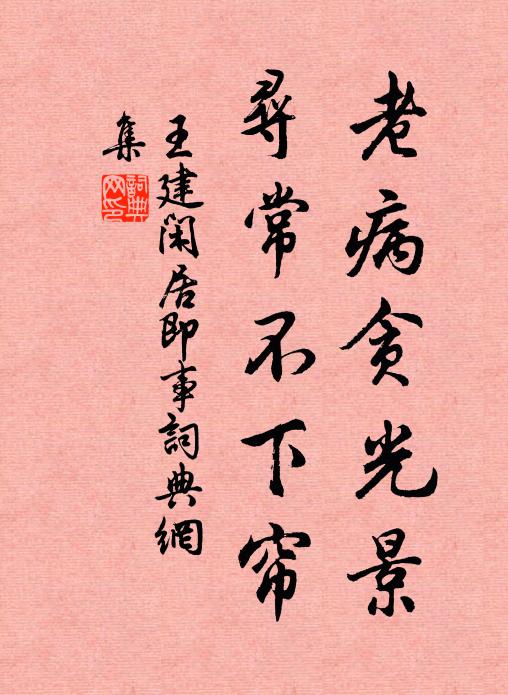 老病贪光景
尋常不下帘
王建闲居即事詞典網
集
詞典
网印